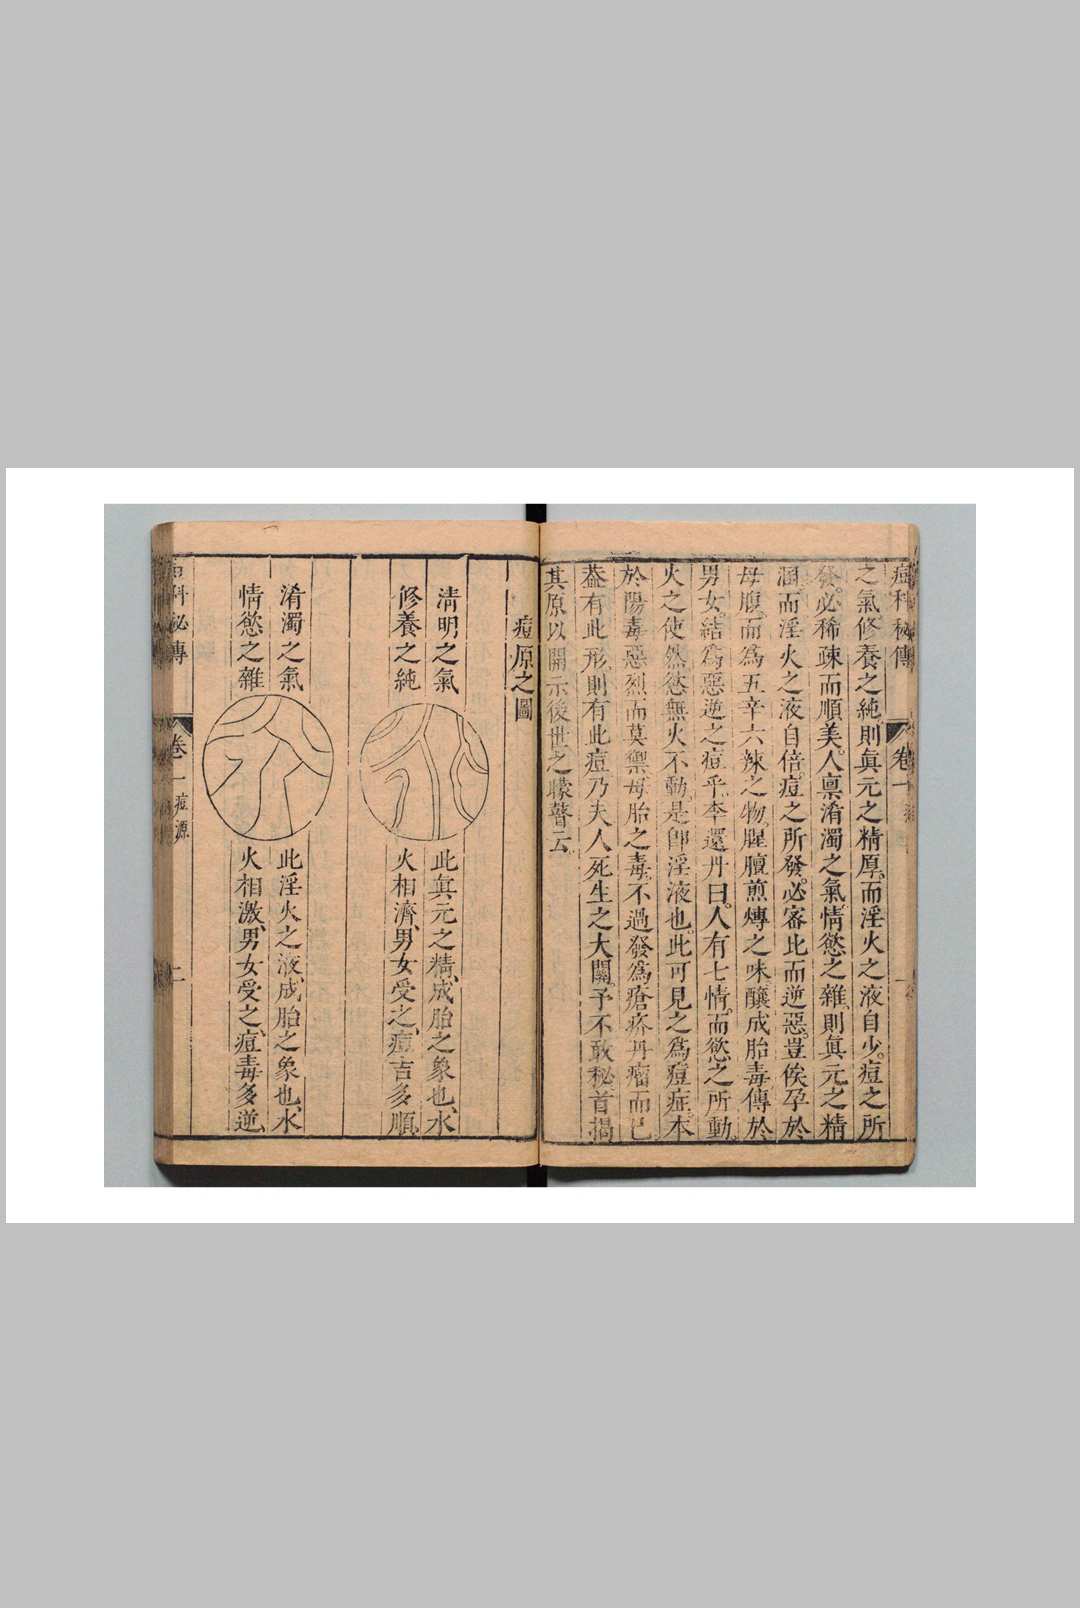 痘科秘傳
卷一
之氣修養之純則眞元之精厚而淫火之液自少痘之所
發必稀疎而順美人禀淆濁之氣情慾之雜則眞元之精
涸而淫火之液自倍痘之所發必審此而逆惡豈俟孕於
母腹而爲五辛六辣之物腥膻煎煿之味釀成胎毒傳於
男女結爲惡逆之痘乎李還丹曰人有七情而慾之所動
火之使然慾無火不動是卽淫液也此可見之爲痘症本
於陽毒惡烈而莫禦母胎之毒不過發爲瘡疥丹瘤而已
葢有此形則有此痘乃夫人死生之大關予不敢秘首揭
其原以開示後世之矇瞽云
痘原之圖
清明之氣
修養之純
此眞元之精成胎之象也水
火相濟男女受之痘吉多順
淆濁之氣
情慾之雜
此淫火之液成胎之象也水
火相激男女受之痘毒多逆
科秘傳
卷一
痘源
二